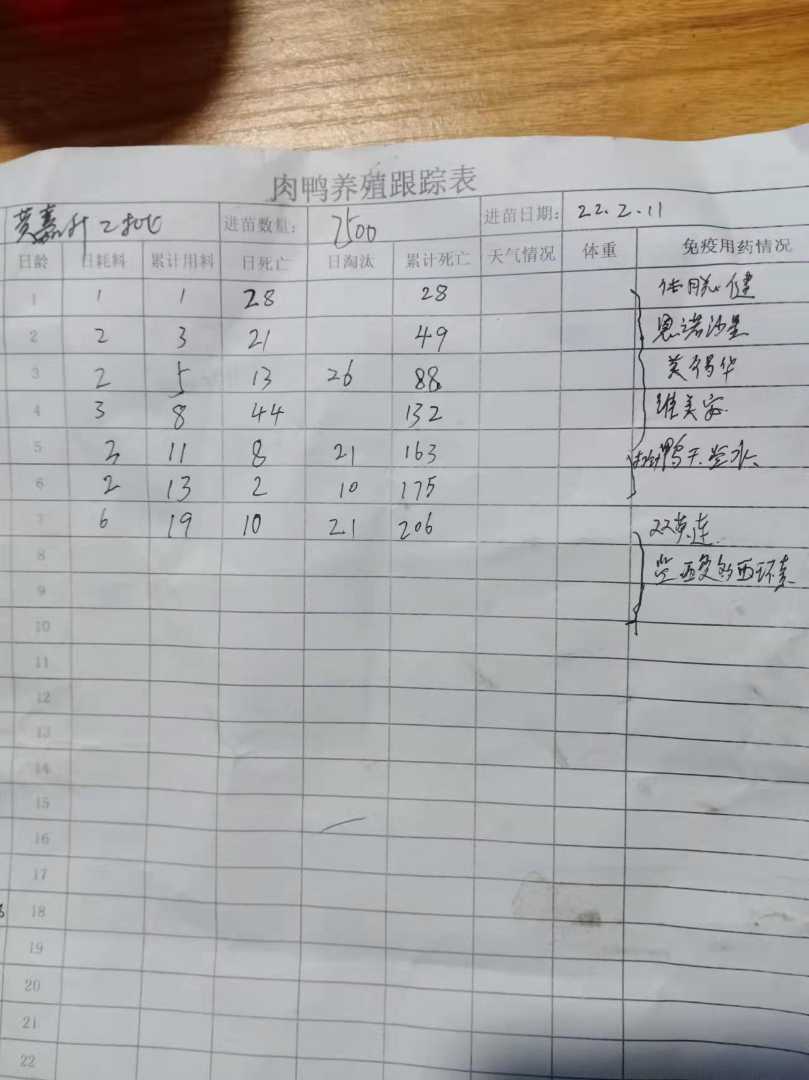 肉鸭养殖跟踪表
黄嘉升 2批 进苗数量: 7500 进苗日期: 22.2.11
日龄 日耗料 累计用料 日死亡 日淘汰 累计死亡 天气情况 体重 免疫用药情况
1 1 1 28 28 健
2 2 3 21 49 恩诺沙星
3 2 5 13 26 88
4 3 8 44 132 维美安
5 3 11 8 21 163 鸭 水
6 2 13 2 10 175
7 6 19 10 21 206 双黄连
8
9
10
11
12
13
14
15
16
17
18
19
20
21
22